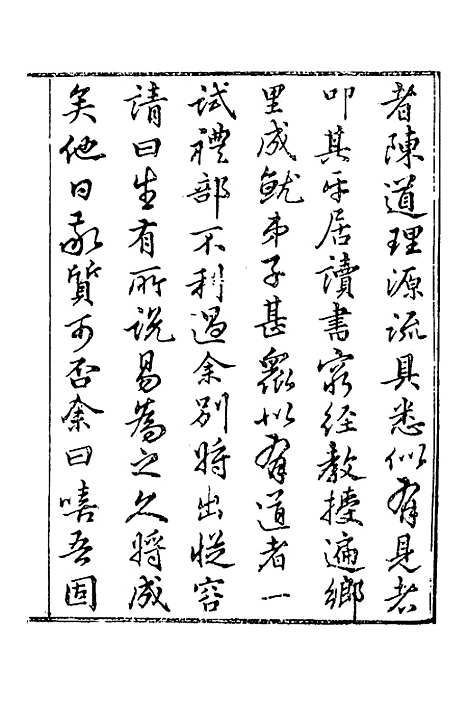 者陳道理源流具悉似有見者
叩其平居讀書窮經教授遍鄉
里成就弟子甚眾似有道者一
試禮部不利過余別將出從容
請曰生有所説易為之久將成
矣他日敢質可否余曰嘻吾固